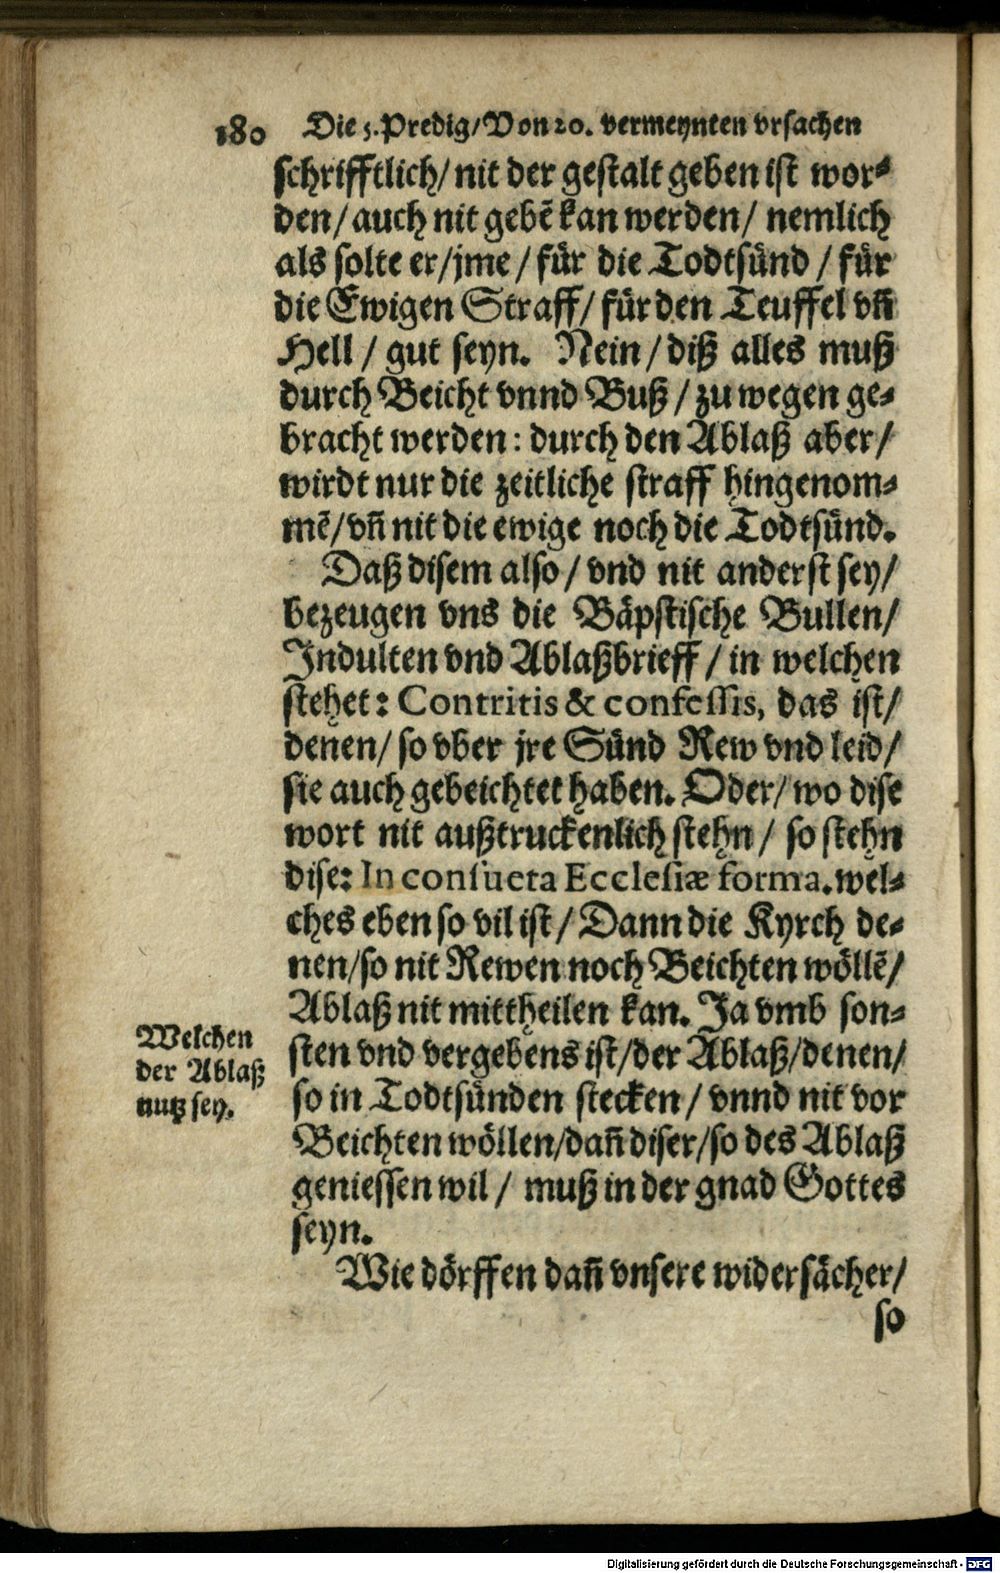 180 Die 5. Predig/ Von 20. vermeynten vrsachen
schrifftlich/ nit der gestalt geben ist wor-
den/ auch nit gebẽ kan werden/ nemlich
als solte er/ jme / für die Todtsünd / für
die Ewigen Straff/ für den Teuffel vñ
Hell / gut seyn. Nein/ diß alles muß
durch Beicht vnnd Buß / zu wegen ge-
bracht werden: durch den Ablaß aber/
wirdt nur die zeitliche straff hingenom-
mẽ/ vñ nit die ewige noch die Todtsünd.
Daß disem also / vnd nit anderst sey/
bezeugen vns die Bäpstische Bullen/
Indulten vnd Ablaßbrieff / in welchen
stehet: Contritis & confessis, das ist/
denen/ so vber jre Sünd Rew vnd leid/
sie auch gebeichtet haben. Oder/ wo dise
wort nit außtruckenlich stehn / so stehn
dise: In consueta Ecclesiæ forma. wel-
ches eben so vil ist/ Dann die Kyrch de-
nen/ so nit Rewen noch Beichten wöllẽ/
Ablaß nit mittheilen kan. Ja vmb son-
Welchen
der Ablaß
nutz sey.
sten vnd vergebens ist/ der Ablaß/ denen/
so in Todtsünden stecken / vnnd nit vor
Beichten wöllen/ dañ diser/ so des Ablaß
geniessen wil / muß in der gnad Gottes
seyn.
Wie dörffen dañ vnsere widersächer/
so
Digitalisierung gefördert durch die Deutsche Forschungsgemeinschaft - DFG